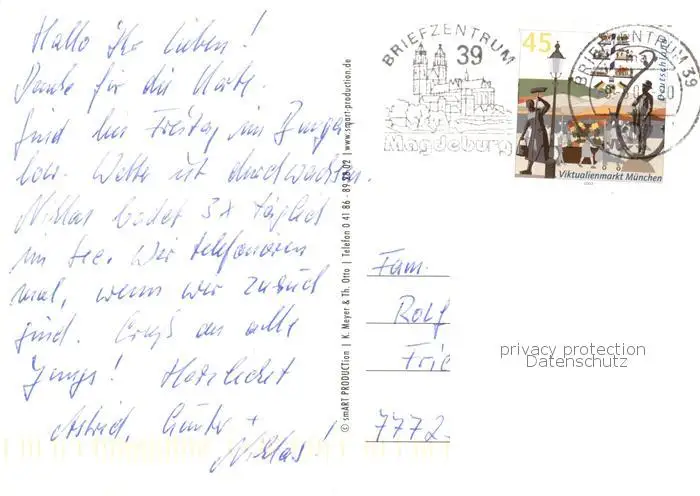 Hallo Ihr Lieben!
Danke für die Karte.
Sind bis Freitag im Bunga-
low. Wetter ist durchwachsen.
Niklas badet 3x täglich
im See. Wir telefonieren
mal, wenn wir zurück
sind. Gruß an alle
Jungs! Herzlichst
Astrid, Günter +
Niklas!
© smART PRODUCTion | K. Meyer & Th. Otto | Telefon 0 41 86 - 89 28 02 | www.smart-production.de
BRIEFZENTRUM
39
Magdeburg
45
Deutschland
Viktualienmarkt München
BRIEFZENTRUM 39
Fam.
Rolf
Frie
7772
privacy protection
Datenschutz